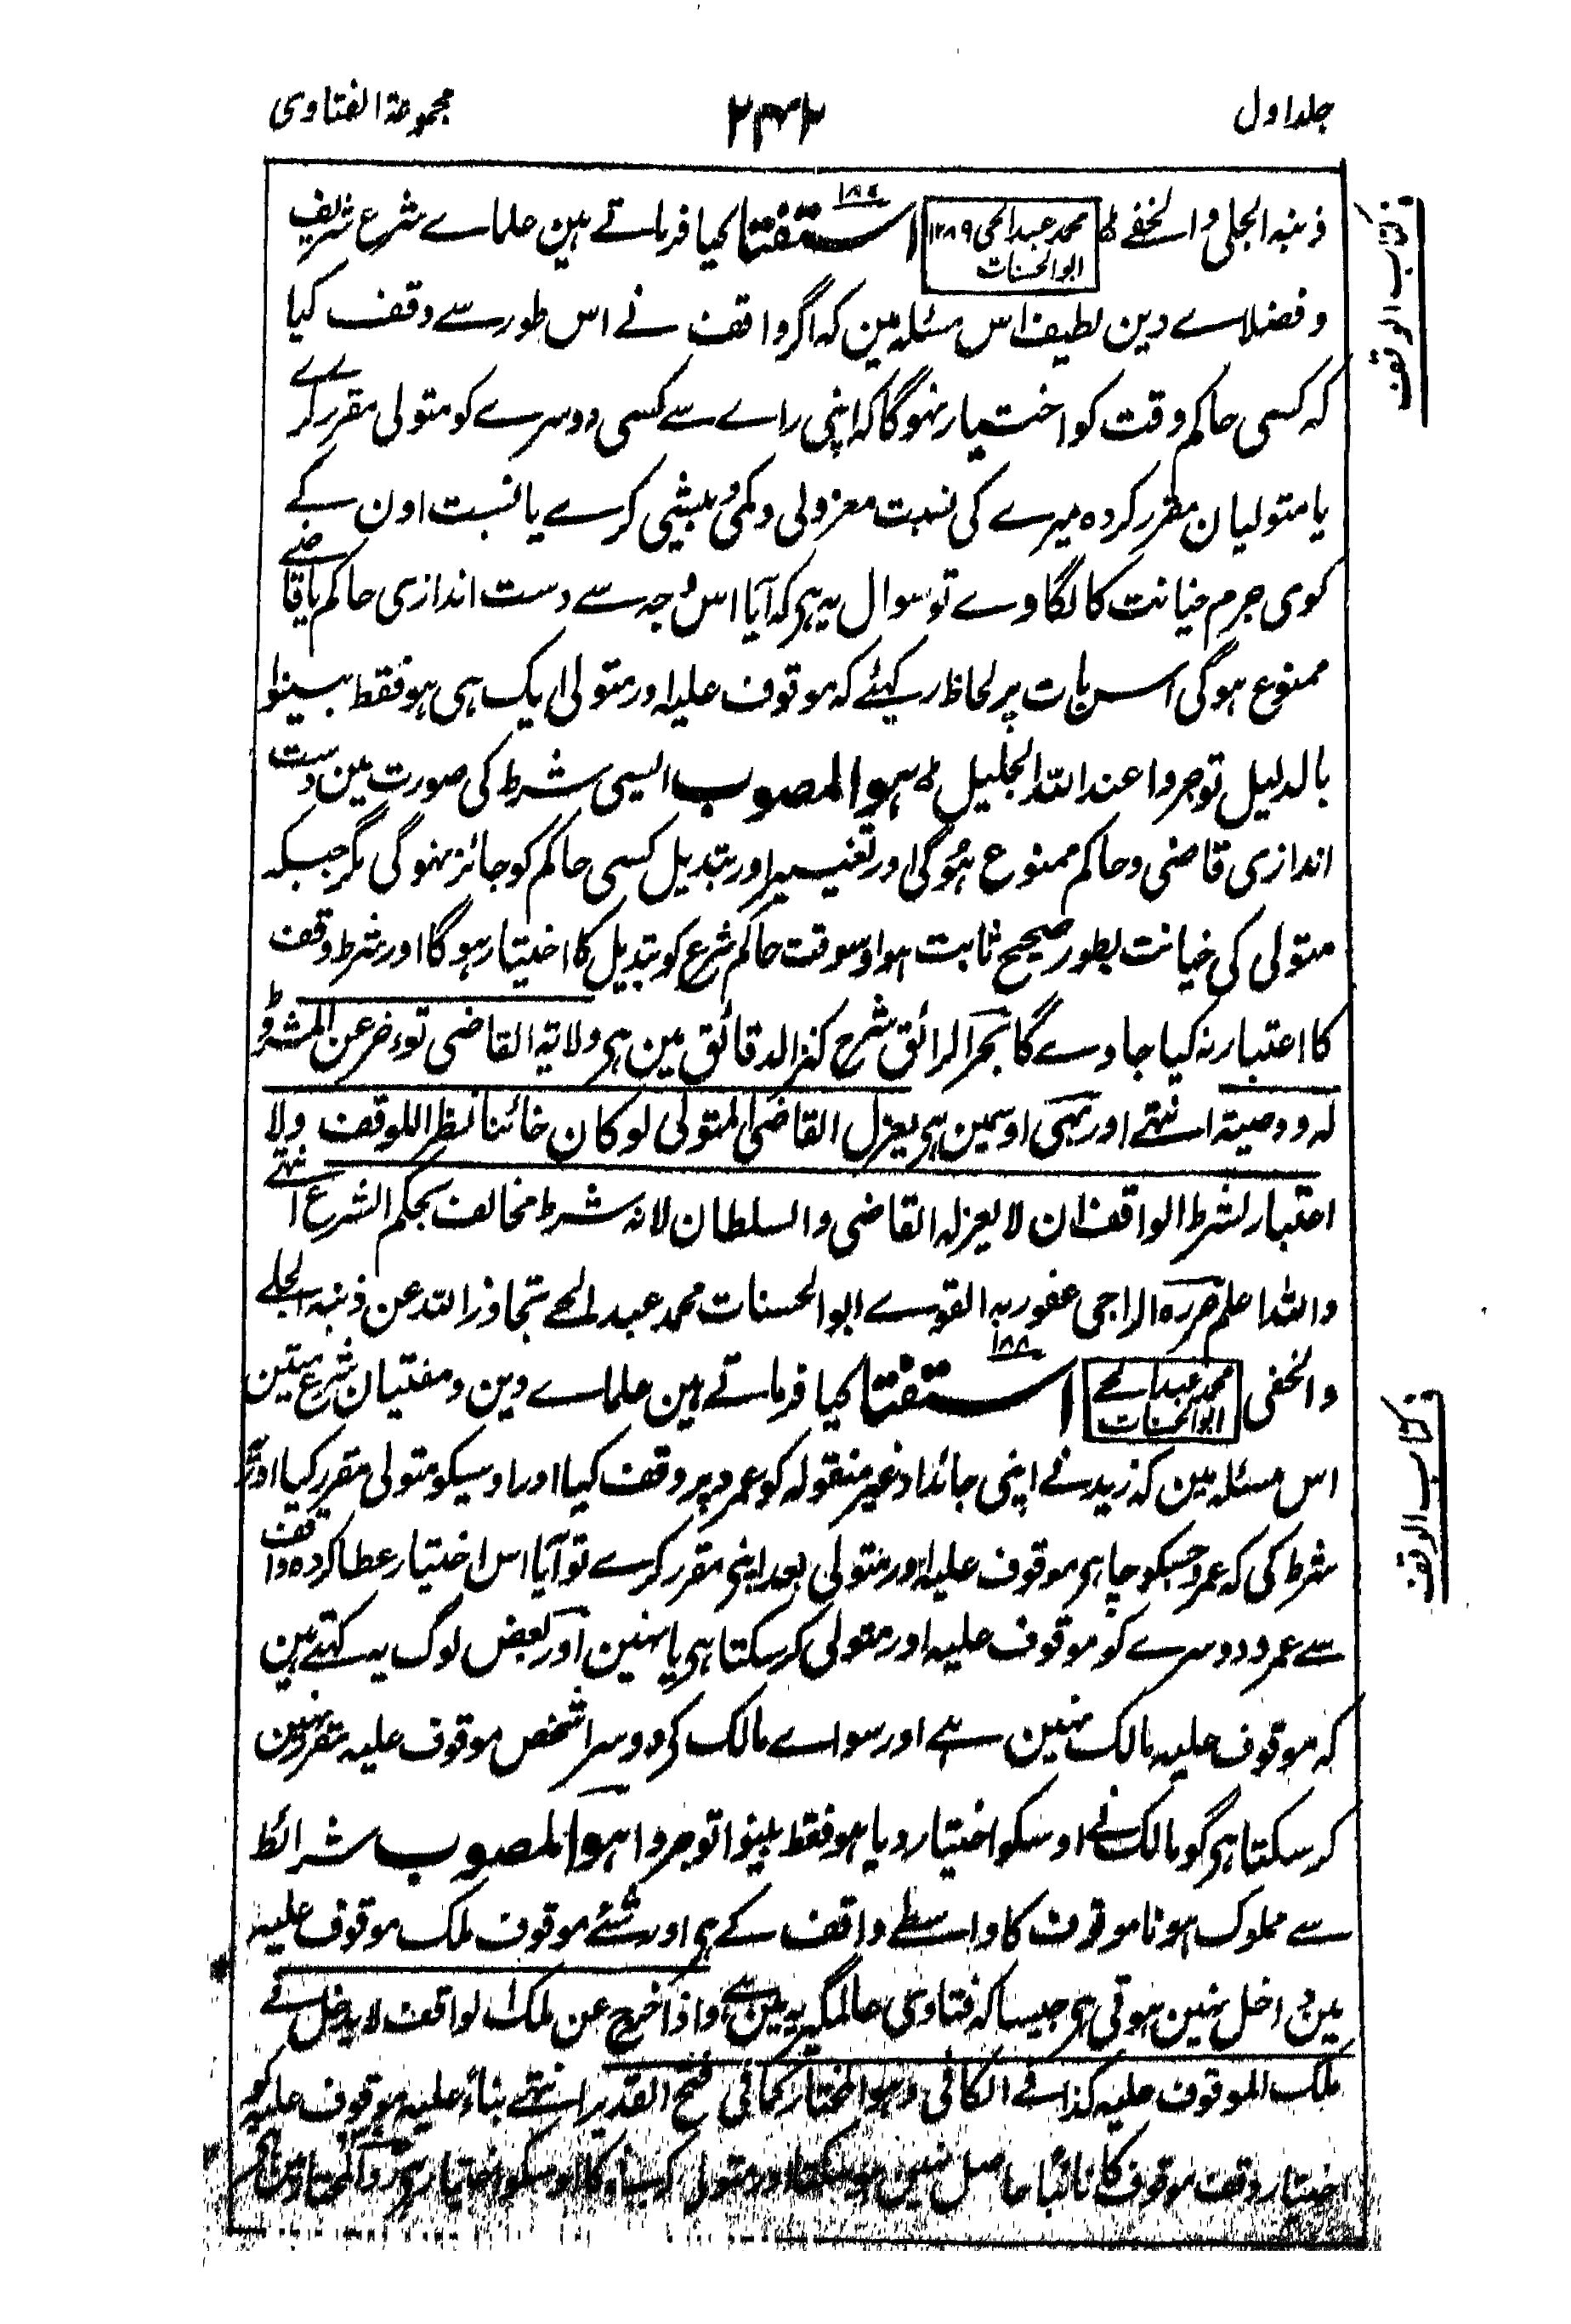 جلد اول
۲۴۳
مجموعة الفتاوی
ذنبہ الجلی والخفے
محمد عبد الحی ۱۲۸۹ ابو الحسنات
۱۸۷
استفتا کیا فرماتے ہین علماے شرع شریف
کتاب الوقف
و فضلاے دین لطیف اس مسئلہ مین کہ اگر واقف نے اس طور سے وقف کیا
کہ کسی حاکم وقت کو اختیار نہوگا کہ اپنی راے سے کسی دوسرے کو متولی مقرر کرے
یا متولیان مقرر کردہ میرے کی نسبت معزولی و کمی و بیشی کرے یا نسبت اون کے
کوی جرم خیانت کا لگاوے تو سوال یہ ہی کہ آیا اس وجہ سے دست اندازی حاکم یا قاضے
ممنوع ہوگی اس بات پر لحاظ رکہئے کہ موقوف علیہ اور متولی ایک ہی ہو فقط بینوا
بالدلیل توجروا عند اللہ الجلیل ہو المصوب ایسی شرط کی صورت مین دست
اندازی قاضی و حاکم ممنوع ہوگی اور تغییر اور تبدیل کسی حاکم کو جائز نہوگی مگر جبکہ
متولی کی خیانت بطور صحیح ثابت ہو اوسوقت حاکم شرع کو تبدیل کا اختیار ہوگا اور شرط وقف
کا اعتبار نہ کیا جاوے گا بحر الرائق شرح کنز الدقائق مین ہی ولایة القاضی توءخر عن المشروط
لہ ووصیة انتہے اور بہی اوسمین ہی یعزل القاضی المتولی لو کان خائنا نظرا للوقف ولا
اعتبار لشرط الواقف ان لا یعزلہ القاضی والسلطان لانہ شرط مخالف بحکم الشرع انتہے
واللہ اعلم حررہ الراجی عفو ربہ القوے ابو الحسنات محمد عبد الحے تجاوز اللہ عن ذنبہ الجلے
والخفی
محمد عبد الحے ابو الحسنات
۱۸۸
استفتا کیا فرماتے ہین علماے دین و مفتیان شرع متین
کتاب الوقف
اس مسئلہ مین کہ زید نے اپنی جائداد غیر منقولہ کو عمرو پر وقف کیا اور اوسیکو متولی مقرر کیا اور
شرط کی کہ عمرو جسکو چاہی موقوف علیہ اور متولی بعد اپنی مقرر کرے تو آیا اس اختیار عطا کردہ واقف
سے عمرو دوسرے کو موقوف علیہ اور متولی کر سکتا ہی یا نہین اور بعض لوگ یہ کہتے ہین
کہ موقوف علیہ مالک نہین ہے اور سواے مالک کی دوسرا شخص موقوف علیہ مقرر نہین
کر سکتا ہی گو مالک نے اوسکو اختیار دیا ہو فقط بینوا توجروا ہو المصوب شرائط
سے مملوک ہونا موقوف کا واسطے واقف کے ہی اور شئے موقوف ملک موقوف علیہ
مین داخل نہین ہوتی ہی جیسا کہ فتاوی عالمگیریہ مین ہے واذا خرج عن ملک الواقف لا یدخل فے
ملک الموقوف علیہ کذا فے الکافی وہو المختار کما فی فتح القدیر انتہے بناءً علیہ موقوف علیہ کو
اختیار وقف موقوف کا حاصل نہین ہو سکتا اور متولی اوسکو اختیار ہی